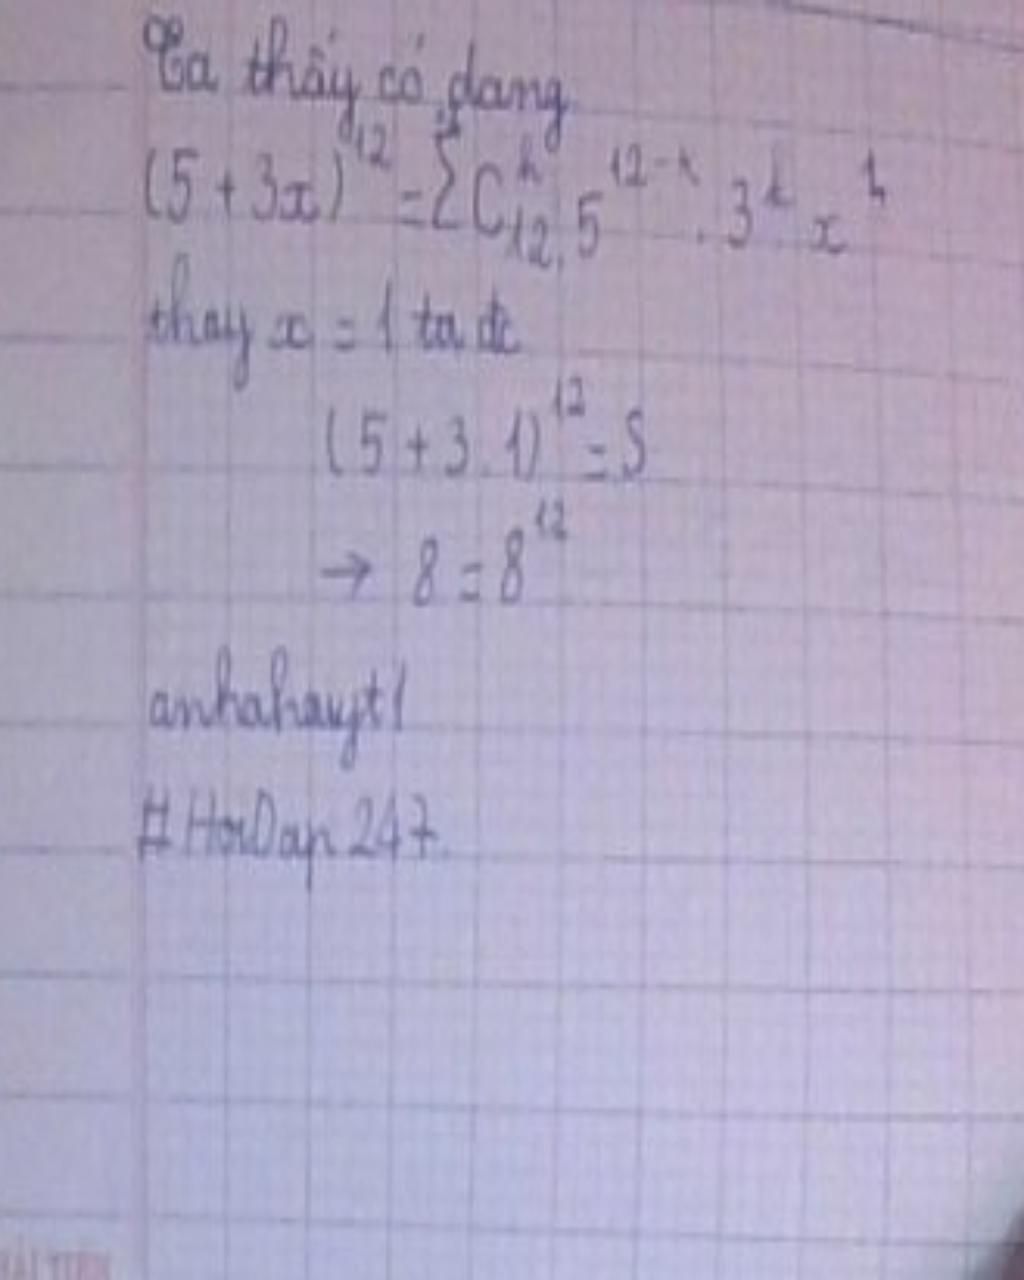 Ta thấy có dạng
(5 + 3x)^12 = Σ C_12^k . 5^(12-k) . 3^k x^k
thay x = 1 ta đc
(5 + 3.1)^12 = S
→ 8 = 8^12
anhahayt1
#HoiDap247.